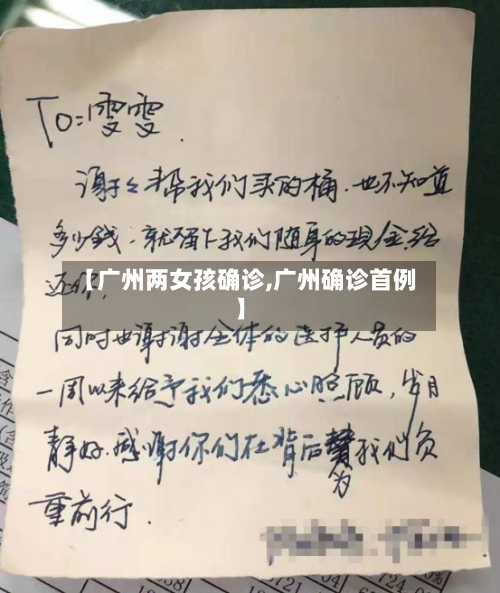 To=雯雯.
谢谢帮我们买的桶.也不知道
多少钱.就留下我们随身的现金给
还你,
【广州两女孩确诊,广州确诊首例
】
同时也谢谢全体的医护人员的
一周以来给予我们悉心照顾,岁月
静好.感谢你们在背后 我们负
为
重前行.